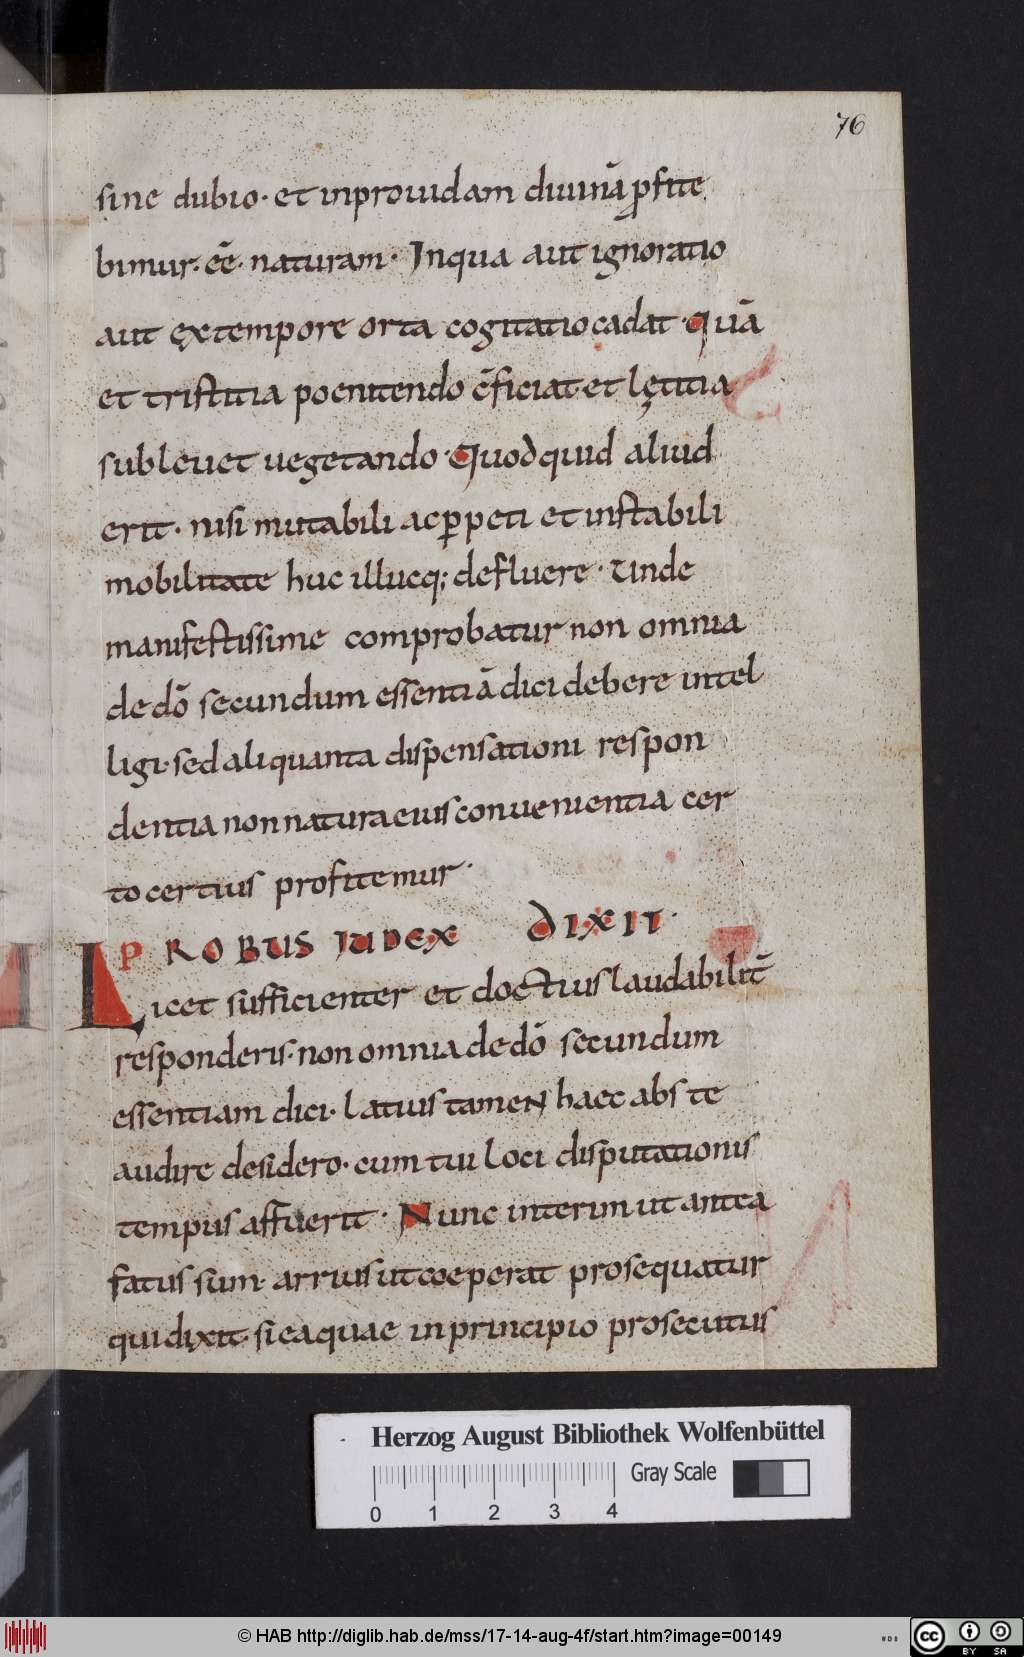 76
sine dubio· et inprouidam diuinā ꝓfite
bimur· eē· naturam· Inqua aut ignoratio
aut extempore orta cogitatio cadat· Quā
et tristitia poenitendo c̄ficiat· et lętitia
subleuet uegetando· Quod quid aliud
erit· nisi mutabili ac ꝑpeti et instabili
mobilitate huc illucq; defluere· Unde
manifestissime comprobatur non omnia
de dō secundum essentiā dici debere intel
ligi· sed aliquanta dispensationi respon
dentia non naturae eius conuenientia cer
to certius profitemur·
PROBUS IUDEX DIXIT·
Licet sufficienter et doctius laudabilit̄
responderis· non omnia de dō secundum
essentiam dici· Latius tamen haec abs te
audire desidero· cum tui loci disputationis
tempus affuerit· Nunc interim ut antea
fatus sum· arrius ut coeperat prosequatur
qui dixit· si ea quae in principio prosecutus
Herzog August Bibliothek Wolfenbüttel
Gray Scale
0 1 2 3 4
© HAB http://diglib.hab.de/mss/17-14-aug-4f/start.htm?image=00149
WDB
cc BY SA